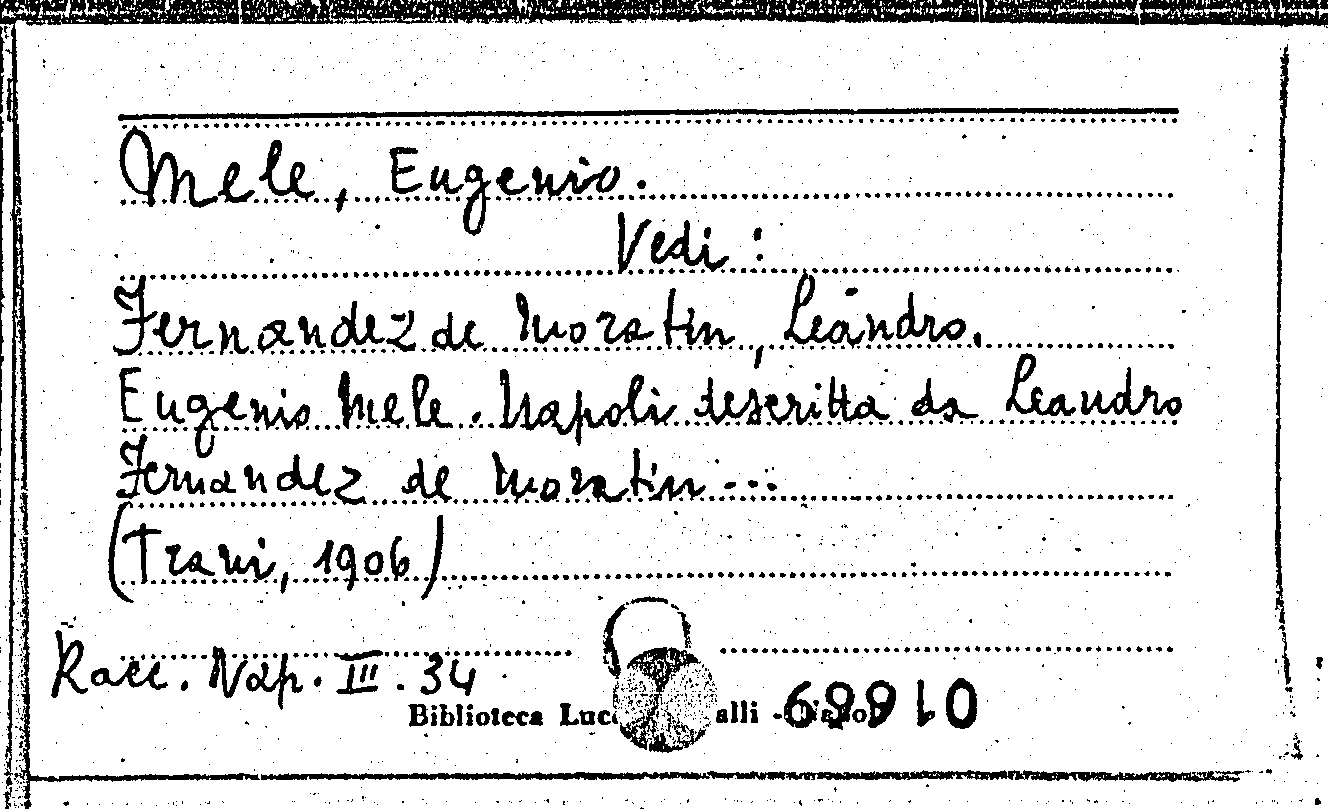 Mele, Eugenio.
Vedi :
Fernandez de Moratin, Leandro.
Eugenio Mele. Napoli descritta da Leandro
Fernandez de Moratin...
(Trani, 1906)
Racc. Nap. III. 34
Biblioteca